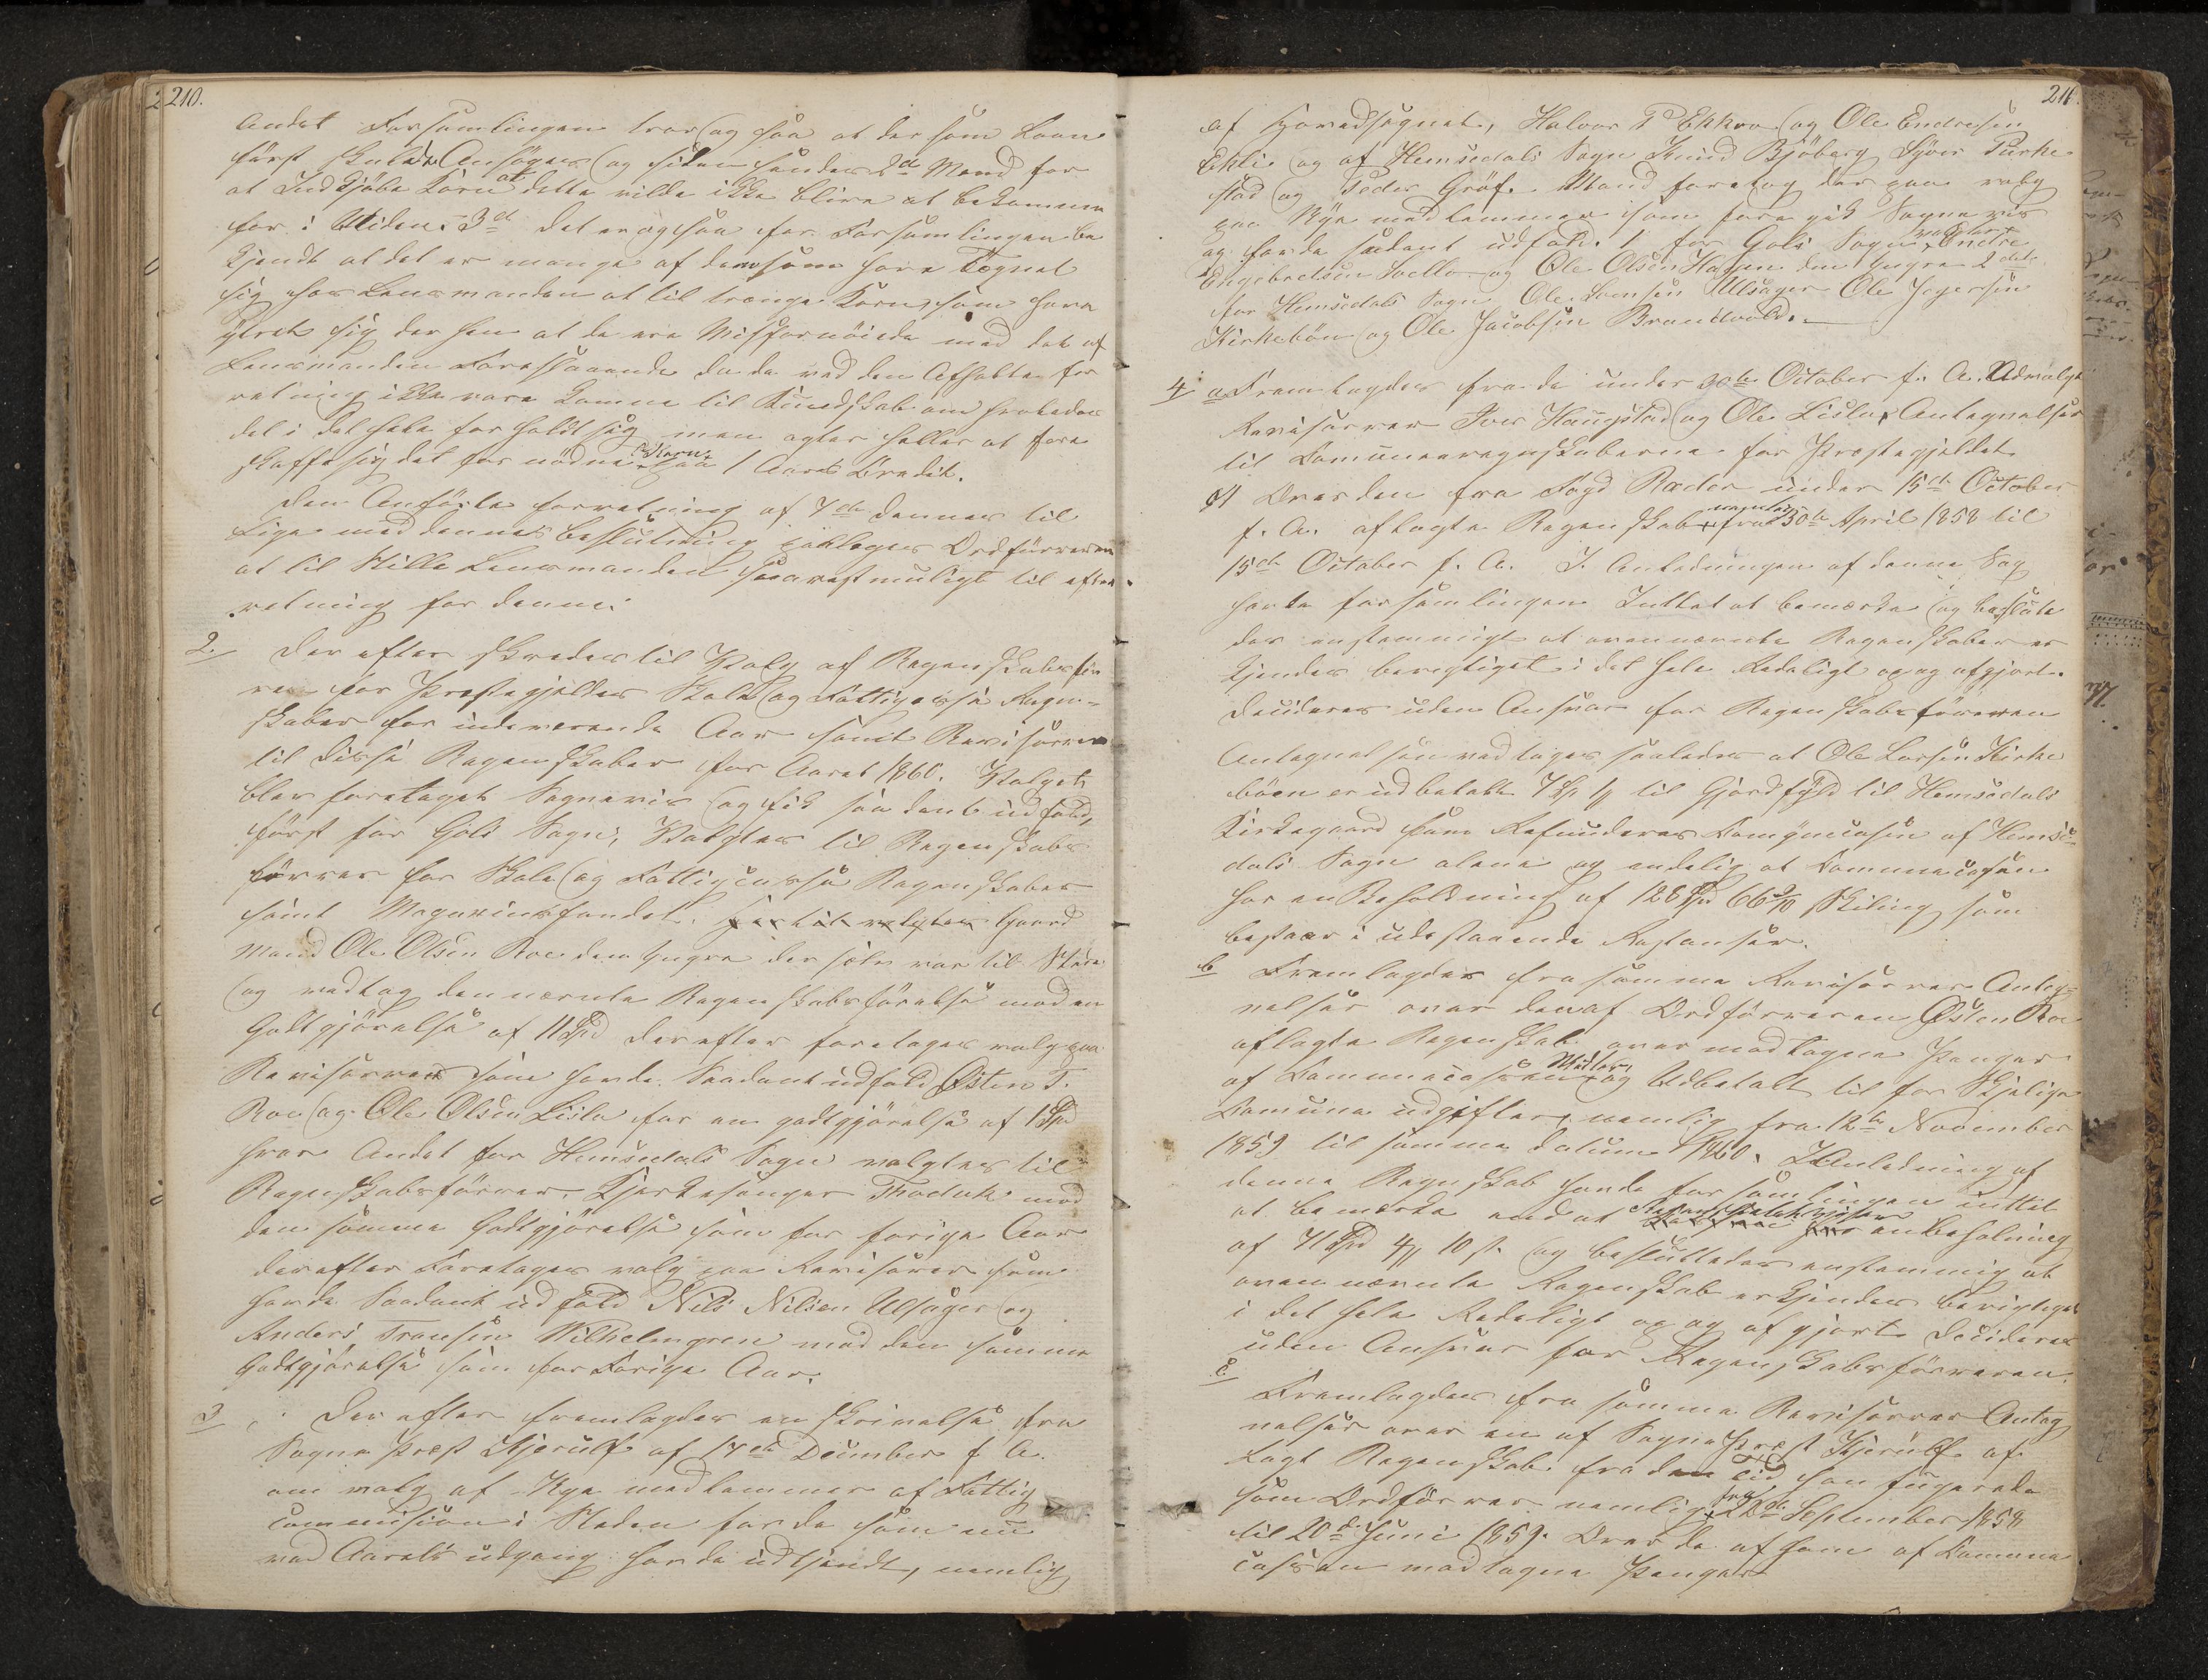 210.
andet Forsamlingen tror og saa at der som Laan
först skulde Ansöges og siden sendes 2de Mand for
at Indkjöbe Korn at dette vilde ikke blive at bekomme
for i Utiden. 3de det er og saa for Forsamlingen be
kjendt at det er mange af dem som have Tegnet
sig hos Lensmanden at til trænge Korn, som have
ytret sig der hen at de ere Misfornöiede med det af
Lensmanden Foreslaaende da de ved den Afholdte for
retning ikke vare komne til Kundskab om hvorledes
det i det hele forholdt sig men agter heller at fore
skaffe sig det for nödne Korn paa 1 Aars Credit.
Den Anförte forretning af 7de dennes til
Lige med dennes beslutning paalegges Ordförreren
at til Stille Lensmanden snarest muligt til efter
retning for denne.
2. Der efter skredes til Valg af Regenskabsför
rer for Prestegjeldes Skole og Fattigcasse Regn=
skaber for indeværende Aar samt Revisorrer
til disse Regenskaber for Aaret 1860. Valget
blev foretaget Sognevis og fik saadant udfald,
först for Gols Sogn, Valgtes til Regenskabs
förrer for Skole og Fattigcasse Regenskaber
samt Magazinsfondet. Gaard
Mand Ole Olsen Roe den yngre der selv var til Stede
og vedtog den nævnte Regenskabsförelse mod en
Godtgjörelse af 11 Spd der efter foretoges valg paa
Revisorrer som havde Saadant udfald Østen T.
Roe og Ole Olsen Lisla for en godtgjörelse af 1 Spd
hver Andet for Hemsedals Sogn valgtes til
Regenskabsförrer, Kjerkesanger Thoduk mod
den samme Godtgjörelse som for forige Aar
derefter Foretoges valg paa Revisorer som
havde Saadant udfald Nils Nilsen Ulsager og
Anders Transen Wilhelmgren mod den samme
Godtgjörelse som for Forige Aar.
3 Der efter fremlagdes en skrivelse fra
Sogne Prest Kjerulf af 17de December f. A.
om valg af Nye medlemmer af Fattig
commission i Steden for de som nu
ved Aarets udgang havde udtjendt, nemlig
211.
af Hovedsognet, Halvor P Ekkre og Ole Endresen
Ekli og af Hemsedals Sogn Knud Bjöberg Syver Turhe
stad og Peder Gröf. Mand foretog der paa valg
paa Nye medlemmer som fore gik Sogne vis
og havde sadant udfald. 1 for Gols Sogn valgtes Endre
Engebretsen Svello og Ole Olsen Hagen den yngre 2det
for Hemsedals Sogn Ole Larsen Ulsager Ole Jegersen
Kirkebön og Ole Jacobsen Brandvold.
4 a Fremlagdes fra de under 30te October f. A. Udvalgte
Revisorrer Iver Haugstad og Ole Lisla, Antegnelser
til Comuneregnskaberne for Prestegjeldet
Over den fra Fogd Rœder under 15de October
f. A. aflagte Regenskab nemlig fra 30te April 1858 til
15de October f. A. I Anledningen af denne Sag
havde forsamlingen Intet at bemærke og beslute
des enstemmigt at ovennævnte Regenskaber er
kjendes berigtiget i det hele Redeligt og og afgjort.
Decideres uden Ansvar for Regenskabsföreren
Antegnelsen vedtages saaledes at Ole Larsen Kirke
böen er udbetalt 7 Sp til Gjordfyld til Hemsedals
Kirkegaard som Refunderes Comunecassen af Hemse
dals Sogn alene og endelig at Comunecassen
har en Beholdning af 128 Spd 66 9/10 Skiling som
bestaar i udestaaende Restanser.
b Fremlagdes fra samme Revisorrer Anteg=
nelser over den af Ordförreren Østen Roe
aflagte Regenskab over modtagne Penger
af Comunecassens Midler, og Udbetalt til for Skjelige
Comune udgifter, nemlig fra 12te November
1859 til samme datum 1860. I Anledning af
denne Regnskab havde forsamlingen inttet
at bemærke end at en beholning
af 71 Spd 4 10 s. og besluttedes enstemmig at
ovennævnte Regenskab erkjendes berigtiget
i det hele Redeligt og og afgjort Decideres
uden Ansvar for Regenskabsförreren.
c Fremlagdes fra samme Revisorrer Anteg
nelser over en af Sogne Prest Kjerulf af
Lagt Regenskab fra den Tid han fugerede
som Ordförrer nemlig fra 22de September 1858
til 20de Juni 1859. Over de af ham af Comune
cassen modtagne Penger